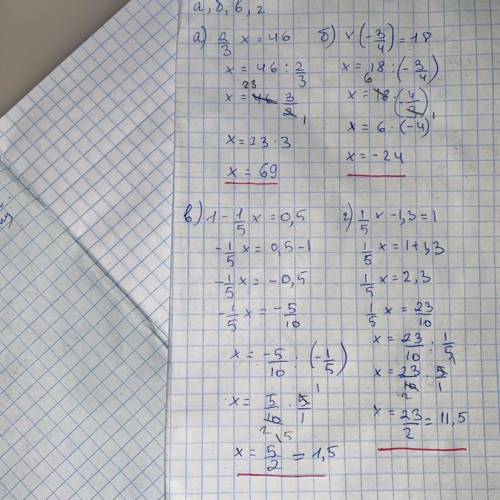 а, б, в, г
а) 2/3 x = 46
x = 46 : 2/3
x = 46 · 3/2
23
1
x = 23 · 3
x = 69
б) x (-3/4) = 18
x = 18 : (-3/4)
6
x = 18 · (-4/3)
1
x = 6 · (-4)
x = -24
в) 1 - 1/5 x = 0,5
-1/5 x = 0,5 - 1
-1/5 x = -0,5
-1/5 x = -5/10
x = -5/10 : (-1/5)
x = 5/10 · 5/1
1
2
x = 5/2 = 1,5
г) 1/5 x - 1,3 = 1
1/5 x = 1 + 1,3
1/5 x = 2,3
1/5 x = 23/10
x = 23/10 : 1/5
x = 23/10 · 5/1
1
2
x = 23/2 = 11,5